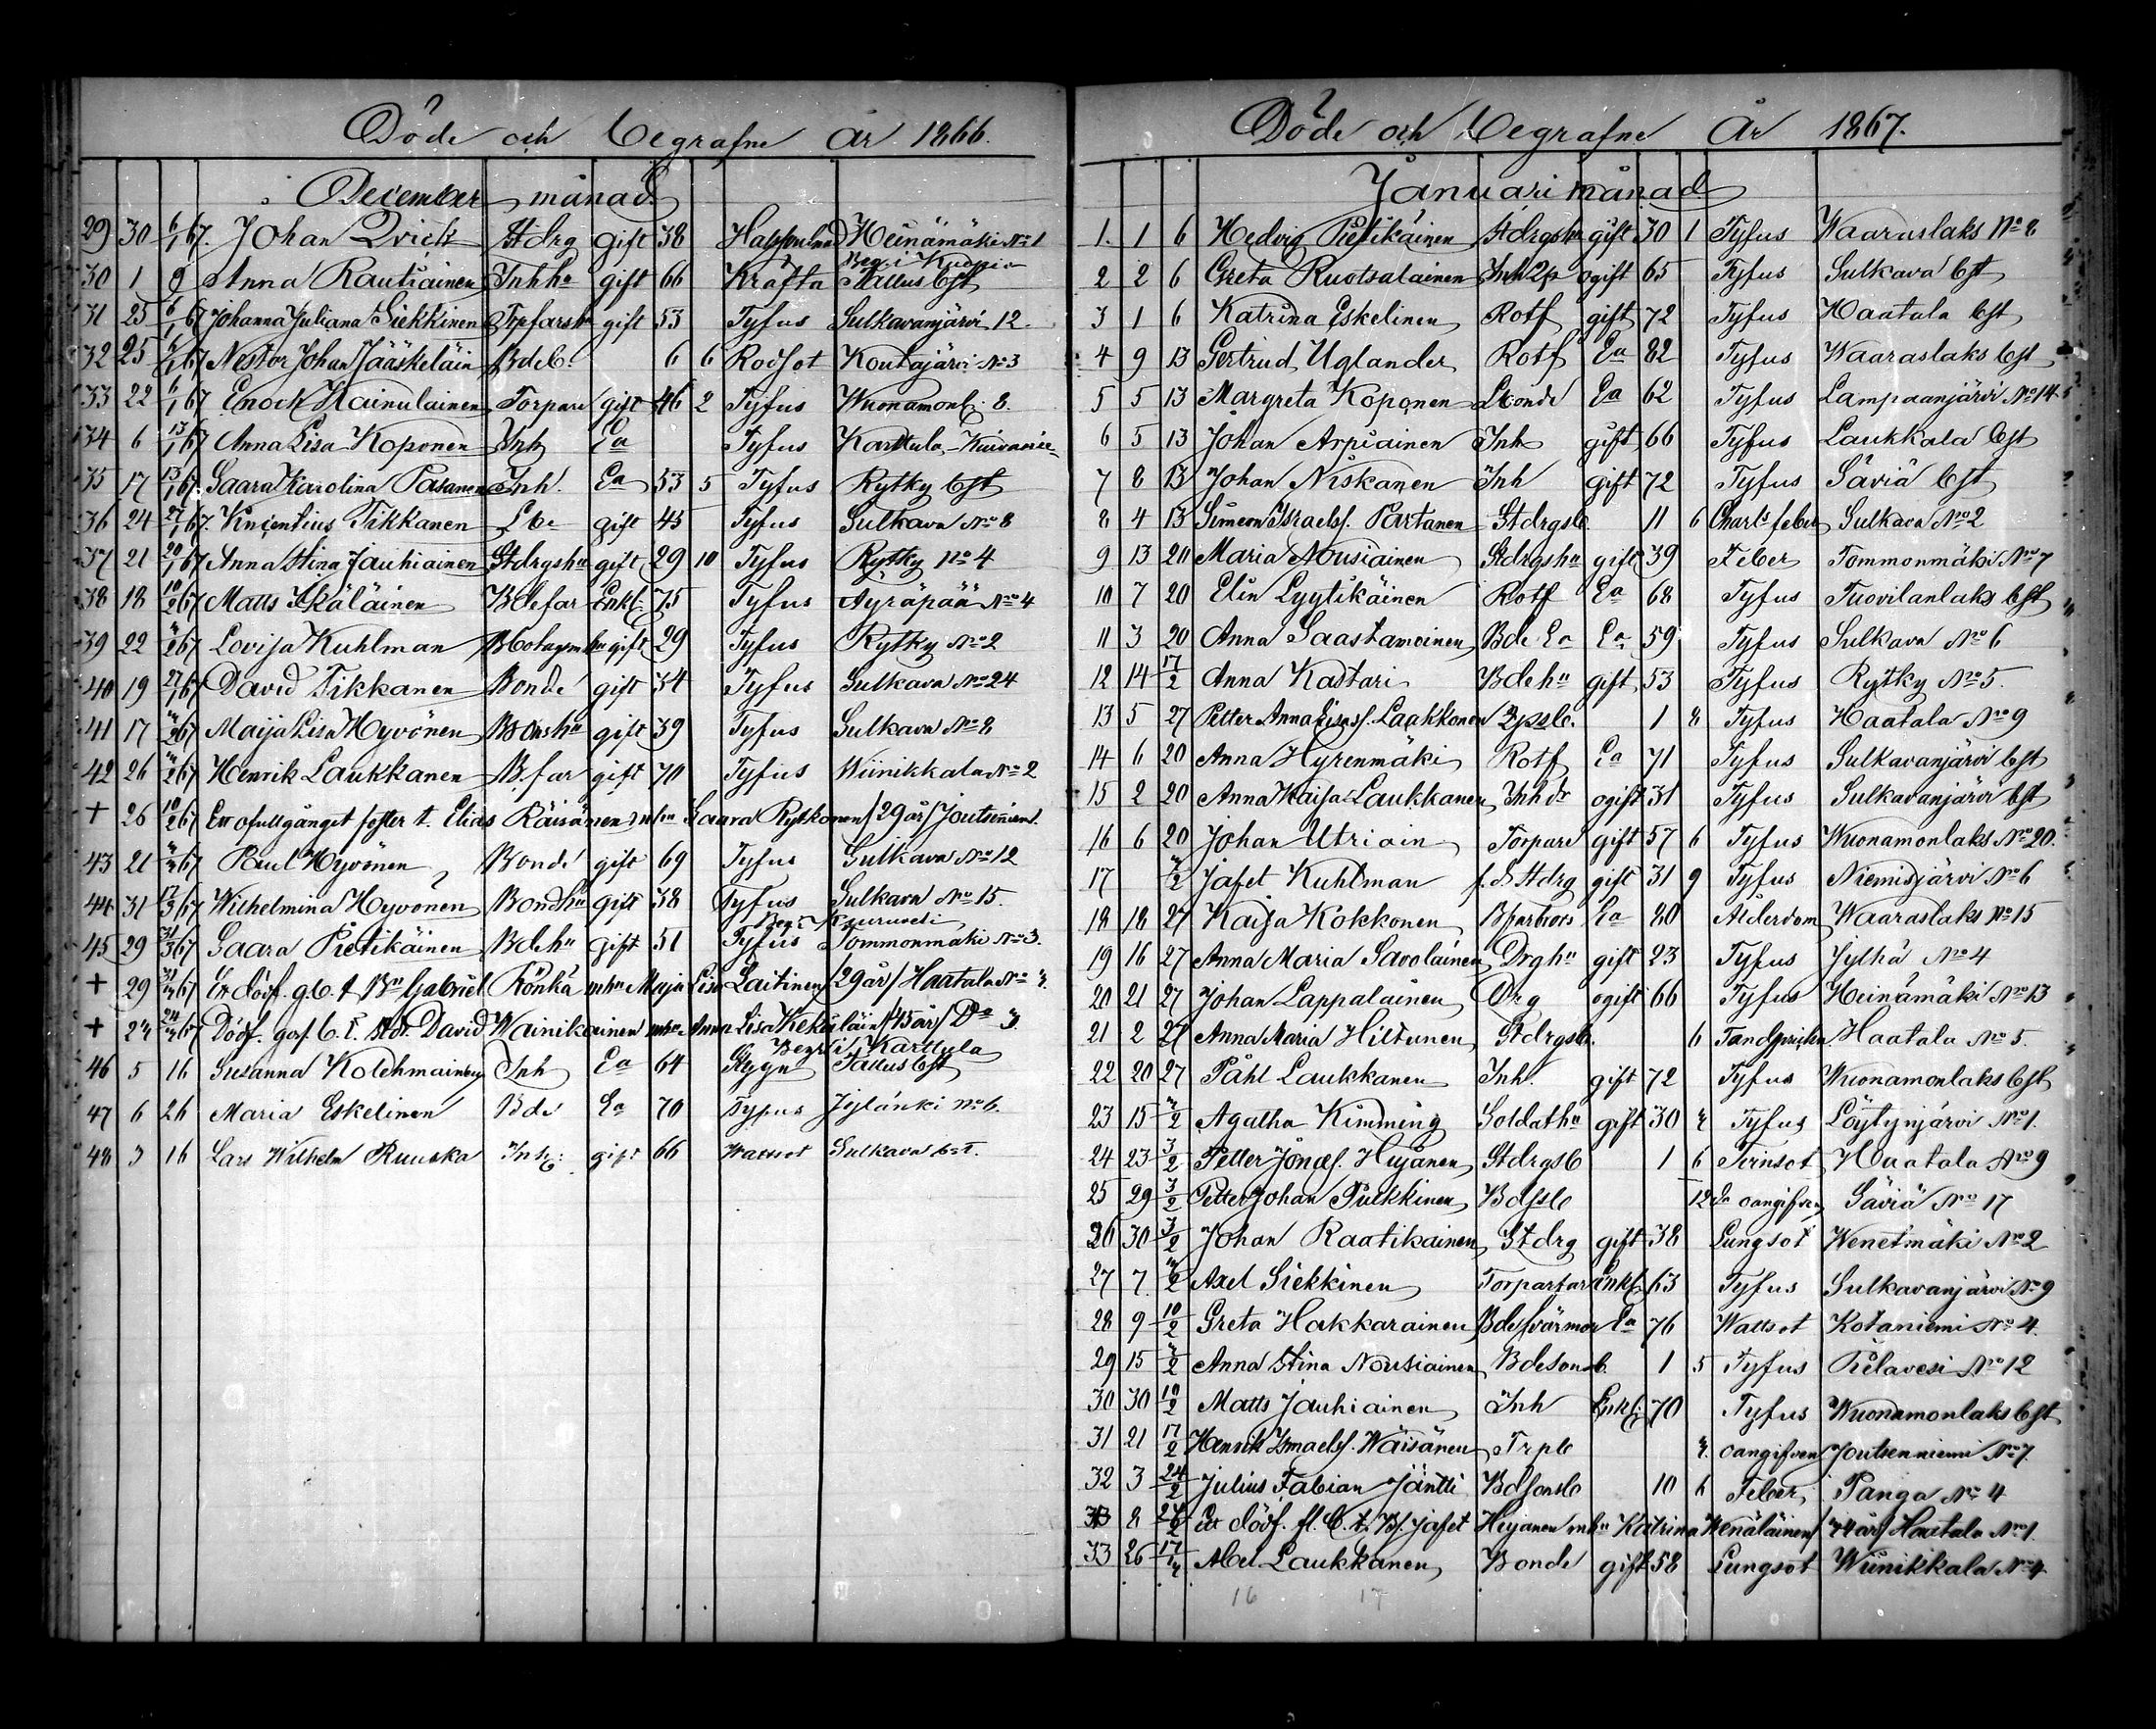 Döde och begrafne år 1866.
December månad
29 30 6/1 67. Johan Qvick Stdrg gift 38 Heinämäki No 1
Begr. i Kuopio
30 1 9 Anna Rautiainen Inhha gift 66 Kräfta Tallus bst
31 25 6/1 67 Johanna Juliana Siekkinen Trpfarsh gift 53 Tyfus Sulkavanjärvi 12.
32 25 6/1 67 Nestor Johan Jääskeläin Bdeb. 6 6 Rödsot Koutajärvi No 3
33 22 6/1 67 Enock Hainulainen Torpare gift 46 2 Tyfus Wuonamonl. 8.
34 6 13/1 67 Anna Lisa Koponen Inh Ea Tyfus Karttula
35 17 13/1 67. Saara Karolina Pasanen Inh. Ea 53 5 Tyfus Rytky bst
36 24 27/1 67. Tikkanen gift 45 Tyfus Sulkava No 8
37 21 20/1 67 Anna Stina Jauhiainen Stdrgshu gift 29 10 Tyfus Rytky No 4
38 18 10/2 67 Matts Ikäläinen Bdefar Enkl. 75 Tyfus Äyräpää No 4
39 22 4/2 67 Lovisa Kuhlman gift 29 Tyfus Rytky No 2
40 19 27/1 67 David Tikkanen Bonde gift 34 Tyfus Sulkava No 24
41 17 4/2 67 Maija Lisa Hyvönen Bonshu gift 39 Tyfus Sulkava No 8
42 26 4/2 67 Henrik Laukkanen B.far gift 70 Tyfus Wiinikkala No 2
+ 26 10/2 67 Ett ofullgånget foster t. Elias Räisänen Saara Rytkönen /29 år/ Joutsniem.
43 21 67 Paul Hyvönen Bonde gift 69 Tyfus Sulkava No 12
44 31 17/3 67 Wilhelmina Hyvönen Bondhu gift 38 Tyfus Sulkava No 15.
45 29 31/3 67 Saara Pietikäinen Bdehu gift 51 Tyfus Tommonmäki No 3.
+ 29 31/3 67 Ett dödf. gb. t. Bn Gabriel Rönkä mhu Maja Lisa Laitinen /29 år/ Haatala No 4.
+ 24 24/4 67 Dödf. gos. b. t. Stdr. David Wainikainen mhu Anna Lisa Kekäläin /45 år/ Do 3
Begr. i Karttula
46 5 16 Susanna Kolehmainen Inh Ea 64 Styng Tallus bst
47 6 26 Maria Eskelinen Bde Ea 70 Tyfus Jylänki No 6.
48 3 16 Lars Wilhelm Ruuska Inh. gift 66 Wattsot Sulkava bst.
Döde och begrafne År 1867.
Januari månad
1. 1 6 Hedvig Pietikäinen Stdrgshu gift 30 1 Tyfus Waaraslaks No 8
2 2 6 Greta Ruotsalainen Inh 2p ogift 65 Tyfus Sulkava bst
3 1 6 Katrina Eskelinen Rotf gift 72 Tyfus Haatala bst
4 9 13 Gertrud Uglander Rotf Ea 82 Tyfus Waaraslaks bst
5 5 13 Margreta Koponen Ea 62 Tyfus Lampaanjärvi No 14
6 5 13 Johan Arpiainen Inh gift 66 Tyfus Laukkala bst
7 8 13 Johan Niskanen Inh gift 72 Tyfus Säviä bst
8 4 13 Simeon Israelsf. Partanen Stdrgsb. 11 6 Charl. feber Sulkava No 2
9 13 20 Maria Nousiainen Stdrgshu gift 39 Feber Tommonmäki No 7
10 7 20 Elin Lyytikäinen Rotf Ea 68 Tyfus Tuovilanlaks bst
11 3 20 Anna Saastamoinen Bde Ea Ea 59 Tyfus Sulkava No 6
12 14 17/2 Anna Kastari Bdehu gift 53 Tyfus Rytky No 5.
13 5 27 Petter Anna Lisasf. Laakkonen 2psb. 1 8 Tyfus Haatala No 9
14 6 20 Anna Hyrenmäki Rotf Ea 71 Tyfus Sulkavanjärvi bst
15 2 20 Anna Kaisa Laukkanen Inh dr ogift 31 Tyfus Sulkavanjärvi bst
16 6 20 Johan Utriain Torpare gift 57 6 Tyfus Wuonamonlaks No 20.
17 4/2 Jafet Kuhlman f.d Stdrg gift 31 9 Tyfus Niemisjärvi No 6
18 18 27 Kaisa Kokkonen Ea 80 Ålderdom Waaraslaks No 15
19 16 27 Anna Maria Savolainen Drghu gift 23 Tyfus Jylhä No 4
20 21 27 Johan Lappalainen Drg ogift 66 Tyfus Heinämäki No 13
21 2 27 Anna Maria Hiltunen Stdrgsb. 6 Tandsprickn Haatala No 5.
22 20 27 Påhl Laukkanen Inh. gift 72 Tyfus Wuonamonlaks bst
23 15 4/2 Agatha Kimming Soldathu gift 30 4 Tyfus Löytynjärvi No 1.
24 23 3/2 Petter Jönæsf. Hujanen Stdrgsb 1 6 Tvinsot Haatala No 9
25 29 3/2 Petter Johan Pulkkinen Bdsb 12 da oangifven Säviä No 17
26 30 3/2 Johan Raatikainen Stdrg gift 38 Lungsot Wenetmäki No 2
27 7 4/2 Axel Siekkinen Torparfar Enkl. 63 Tyfus Sulkavanjärvi No 9
28 9 10/2 Greta Hakkarainen Bdesvärmor Ea 76 Wattsot Kotaniemi No 4.
29 15 4/2 Anna Stina Nousiainen Bdesonsb. 1 5 Tyfus Pielavesi No 12
30 30 10/2 Matts Jauhiainen Inh Enkl. 70 Tyfus Wuonamonlaks bst
31 21 17/2 Henrik Ismaelsf. Wäisänen Trpb 4. oangifven Joutsenniemi No 7.
32 3 24/2 Julius Fabian Jäntti Bdsonsb 10 6 Feber Panga No 4
8 Ett dödf. fl. b. t. Bf. Jafet Hujanen mhu Katrina Wenäläinen /44 år/ Haatala No 1.
33 26 17/4 Abel Laukkanen Bonde gift 58 Lungsot Wiinikkala No 4
16 17